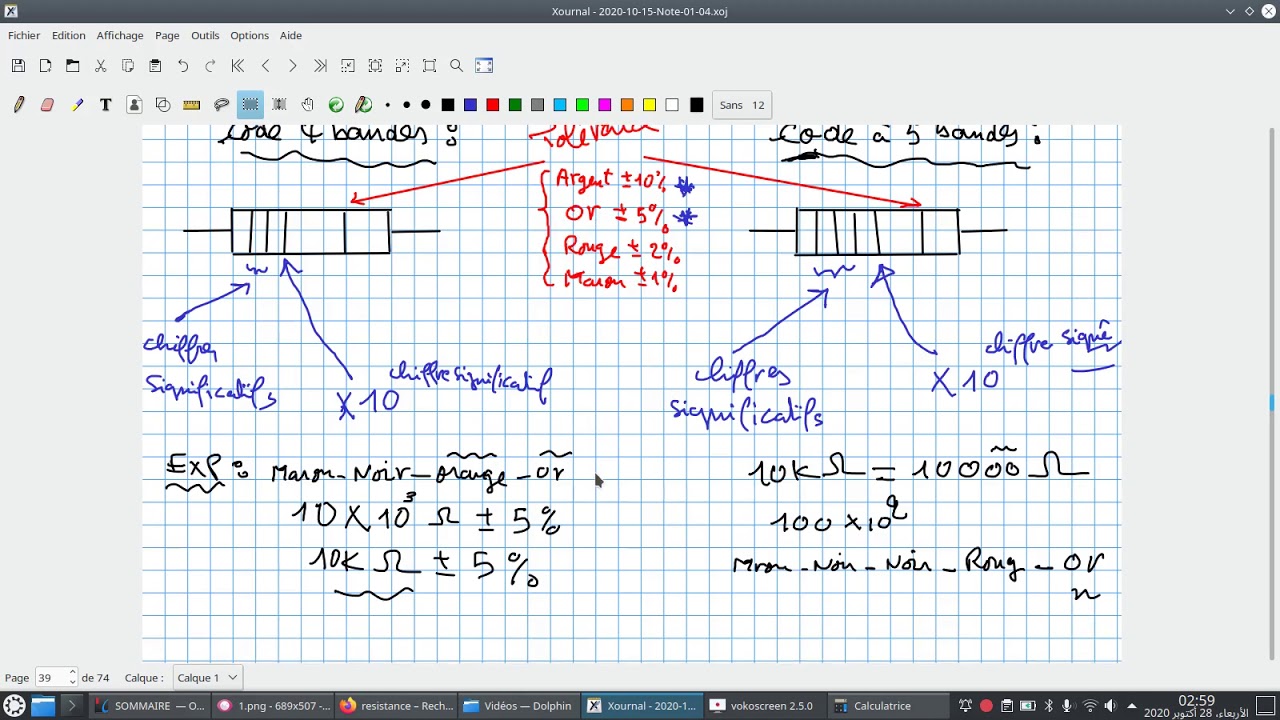 Xournal - 2020-10-15-Note-01-04.xoj
Fichier Edition Affichage Page Outils Options Aide
Sans 12
Code 4 bandes :
Code à 5 bandes :
Argent ±10%
Or ± 5%
Rouge ± 2%
Maron ±1%
chiffres
significatifs
chiffre significatif
X 10
chiffres
significatifs
chiffre
X 10
Exp : Maron - Noir - Orange - Or
10 X 10³ Ω ± 5%
10K Ω ± 5%
10K Ω = 10000 Ω
100 x 10²
Mron - Noir - Noir - Roug - Or
Page 39 de 74 Calque : Calque 1
SOMMAIRE — O...
1.png - 689x507 -...
resistance – Rech...
Vidéos — Dolphin
Xournal - 2020-1...
vokoscreen 2.5.0
Calculatrice
02:59
الأربعاء، 28 أكتوبر 2020